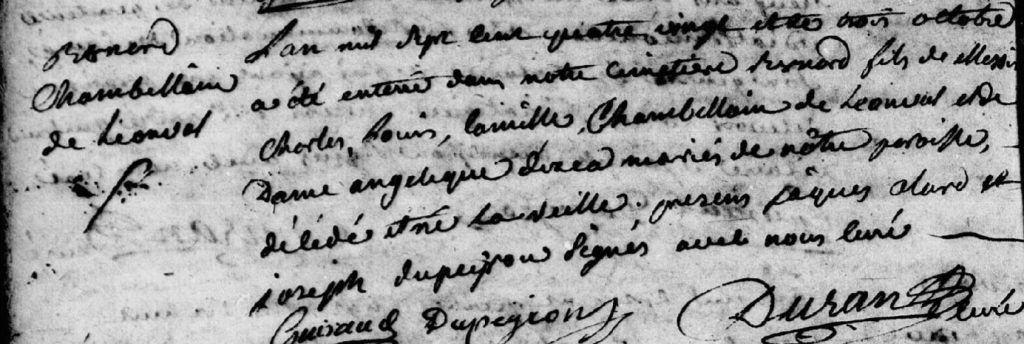 Bernard
Chambellain
de Leonval
L'an mil sept cent quatre vingt et des trois octobre
a été enterré dans notre cimetière Bernard fils de Messire
Charles, Louis, Camille, Chambellain de Leonval et de
Dame angelique mariés de nôtre paroisse,
décédé et né la veille, presens jâques et
joseph dupeyrou signés avec nous curé
Guiraud Dupeyron Duran Curé